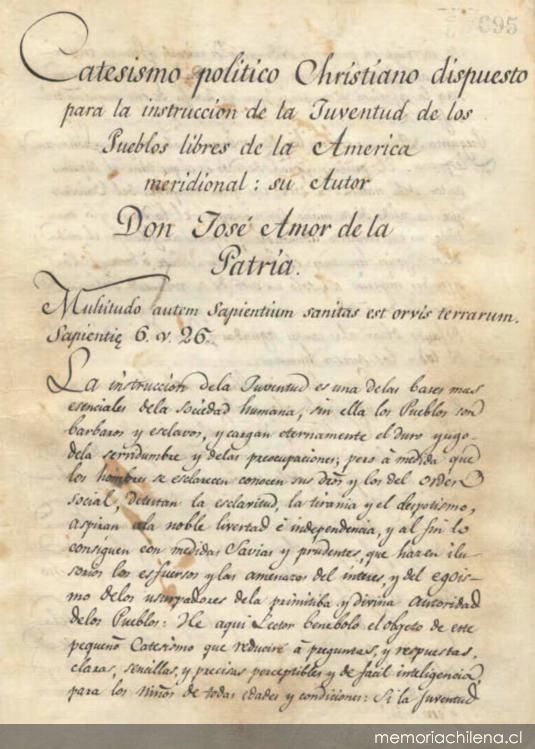 695
Catesismo politico Christiano dispuesto
para la instruccion de la Juventud de los
Pueblos libres de la America
meridional: su Autor
Don José Amor de la
Patria.
Multitudo autem Sapientium sanitas est orvis terrarum.
Sapientię 6. v. 26.
La instruccion dela Juventud es una delas bases mas
esenciales dela sociedad humana, sin ella los Pueblos son
barbaros y esclavos, y cargan eternamente el duro yugo
dela servidumbre y delas preocupaciones; pero à medida que
los hombres se esclarecen conocen sus dros y los del orden
social, detestan la esclavitud, la tirania y el despotismo,
aspiran ala noble livertad è independencia, y al fin lo
consiguen con medidas Savias y prudentes, que hazen ilu-
sorios los esfuersos y las amenazas del interes, y del egois-
mo delos usurpadores dela primitiba y divina autoridad
delos Pueblos: He aqui Lector benebolo el objeto de este
pequeño Catesismo que reducirè à preguntas, y respuestas,
claras, sencillas, y precisas perceptibles y de facil inteligencia
para los niños de todas edades y condiciones: Si la Juventud
memoriachilena.cl